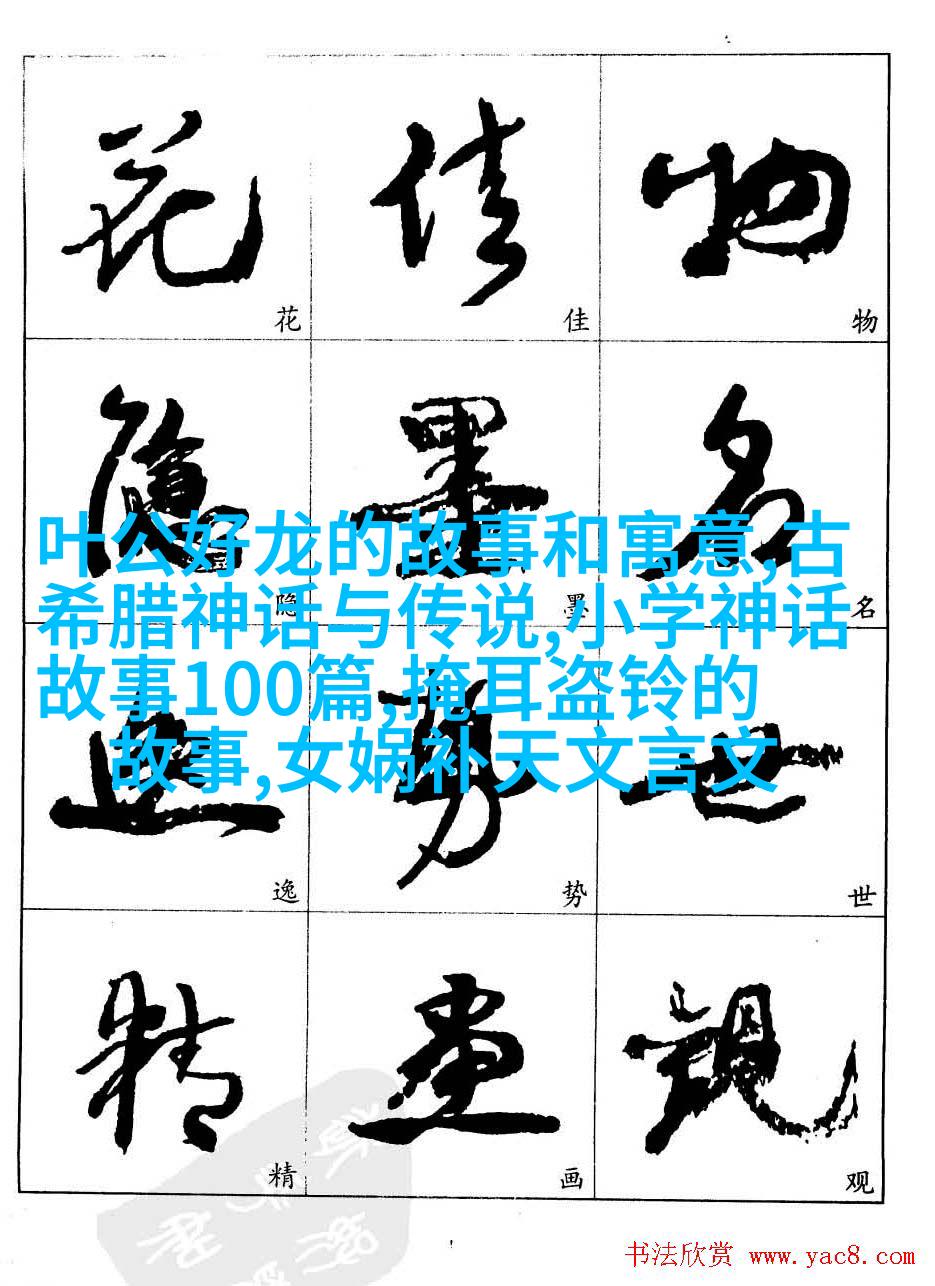 花 佳 物
花 佳 物
隐 墨 名
隐 墨 名
叶公好龙的故事和寓意,古
希腊神话与传说,小学神话
故事100篇,掩耳盗铃的
故事,女娲补天文言文
逸 势 世
逸 势 世
精 画 观
精 画 观
书法欣赏 www.yac8.com